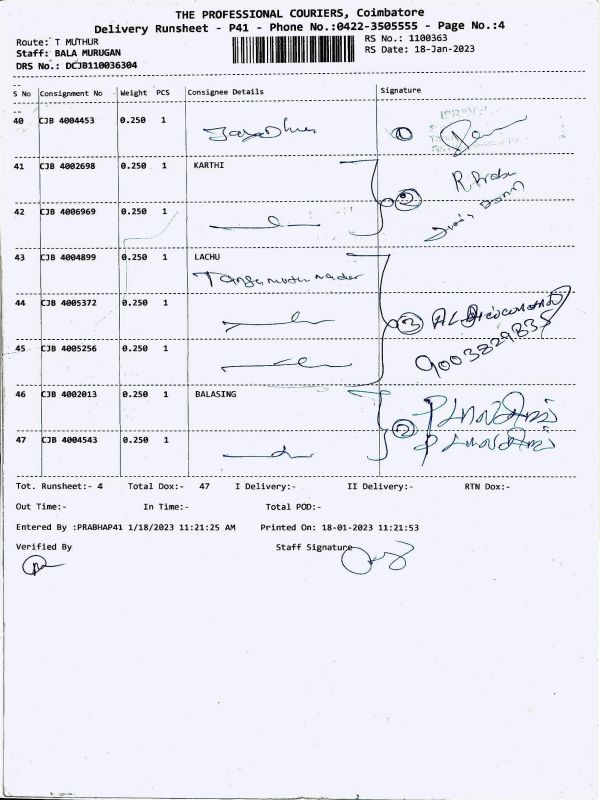 THE PROFESSIONAL COURIERS, Coimbatore
Delivery Runsheet - P41 - Phone No.:0422-3505555 - Page No.:4
Route: T MUTHUR
RS No.: 1100363
Staff: BALA MURUGAN
RS Date: 18-Jan-2023
DRS No.: DCJB110036304
S No Consignment No Weight PCS Consignee Details Signature
40 CJB 4004453 0.250 1 ①
41 CJB 4002698 0.250 1 KARTHI
R. Prabu
②
42 CJB 4006969 0.250 1
43 CJB 4004899 0.250 1 LACHU
44 CJB 4005372 0.250 1 ③
9003829835
45 CJB 4005256 0.250 1
46 CJB 4002013 0.250 1 BALASING
②
47 CJB 4004543 0.250 1
Tot. Runsheet:- 4 Total Dox:- 47 I Delivery:- II Delivery:- RTN Dox:-
Out Time:- In Time:- Total POD:-
Entered By :PRABHAP41 1/18/2023 11:21:25 AM Printed On: 18-01-2023 11:21:53
Verified By Staff Signature